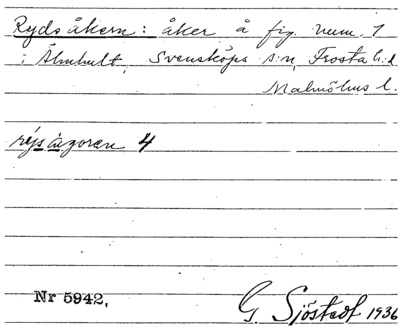 Rydsåkern: åker å fig. num. 1
i Älmhult, Svensköps s:n, Frosta h:d.
Malmöhus l.
rýsågoren 4
Nr 5942,
G Sjöstedt 1936